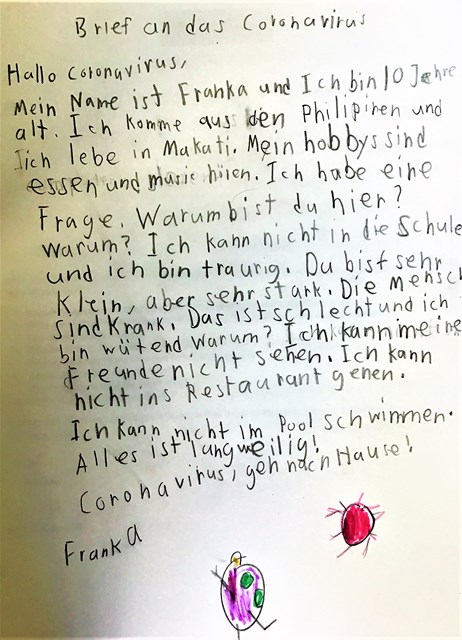 Brief an das Coronavirus
Hallo Coronavirus,
Mein Name ist Franka und Ich bin 10 Jahre
alt. Ich komme aus den Philipinen und
Iich lebe in Makati. Mein hobbys sind
essen und music hören. Ich habe eine
Frage. Warum bist du hier?
Warum? Ich kann nicht in die Schule
und ich bin traurig. Du bist sehr
Klein, aber sehr stark. Die Mensch
sind Krank. Das ist schlecht und ich
bin wütend warum? Ich kann meine
Freunde nicht sehen. Ich kann
nicht ins Restaurant gehen.
Ich kann nicht im Pool schwimmen.
Alles ist langweilig!
Coronavirus, geh nach Hause!
Franka